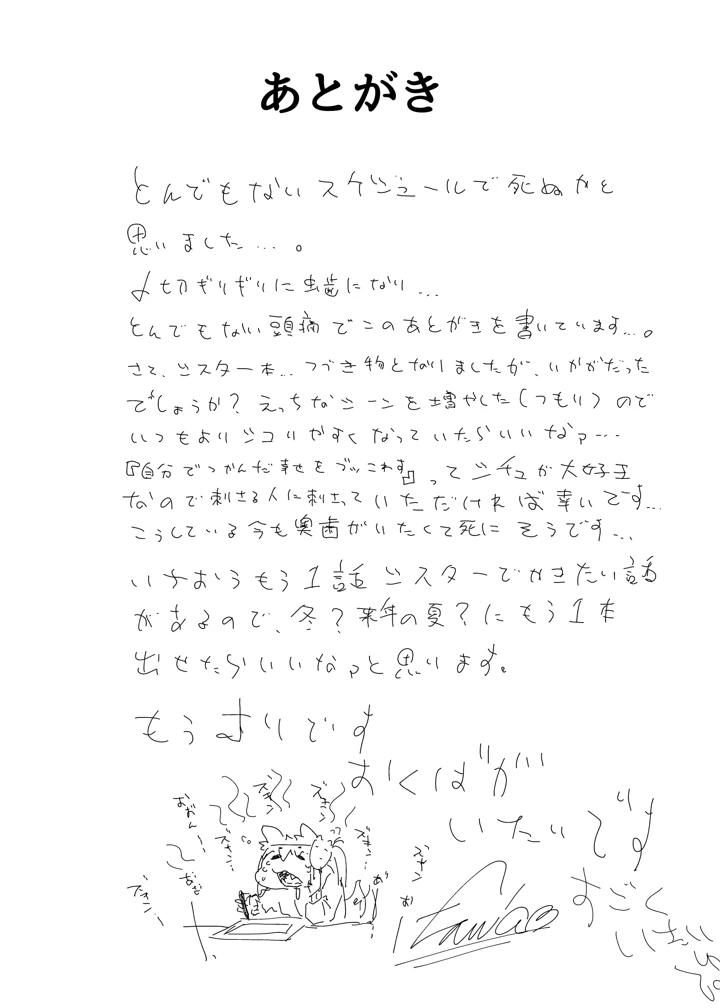 あとがき
とんでもないスケジュールで死ぬかと
思いました…。
〆切ぎりぎりに虫歯になり…
とんでもない頭痛でこのあとがきを書いています…。
さて、シスター本…つづき物となりましたが、いかがだった
でしょうか？えっちなシーンを増やした(つもり)ので
いつもよりシコりやすくなっていたらいいなァ…
『自分でつかんだ幸せをブッこわす』ってシチュが大好王
なので刺さる人に刺さっていただければ幸いです…
こうしている今も奥歯がいたくて死にそうです…
いちおうもう1話シスターでかきたい話
があるので、冬？来年の夏？にもう1本
出せたらいいなァと思います。
もうムリです
おくばが
いたいです
すごく
いたい
ズキン
ズキン
ズキン…
ズキン…
ズキン
ズキン…
おおん…